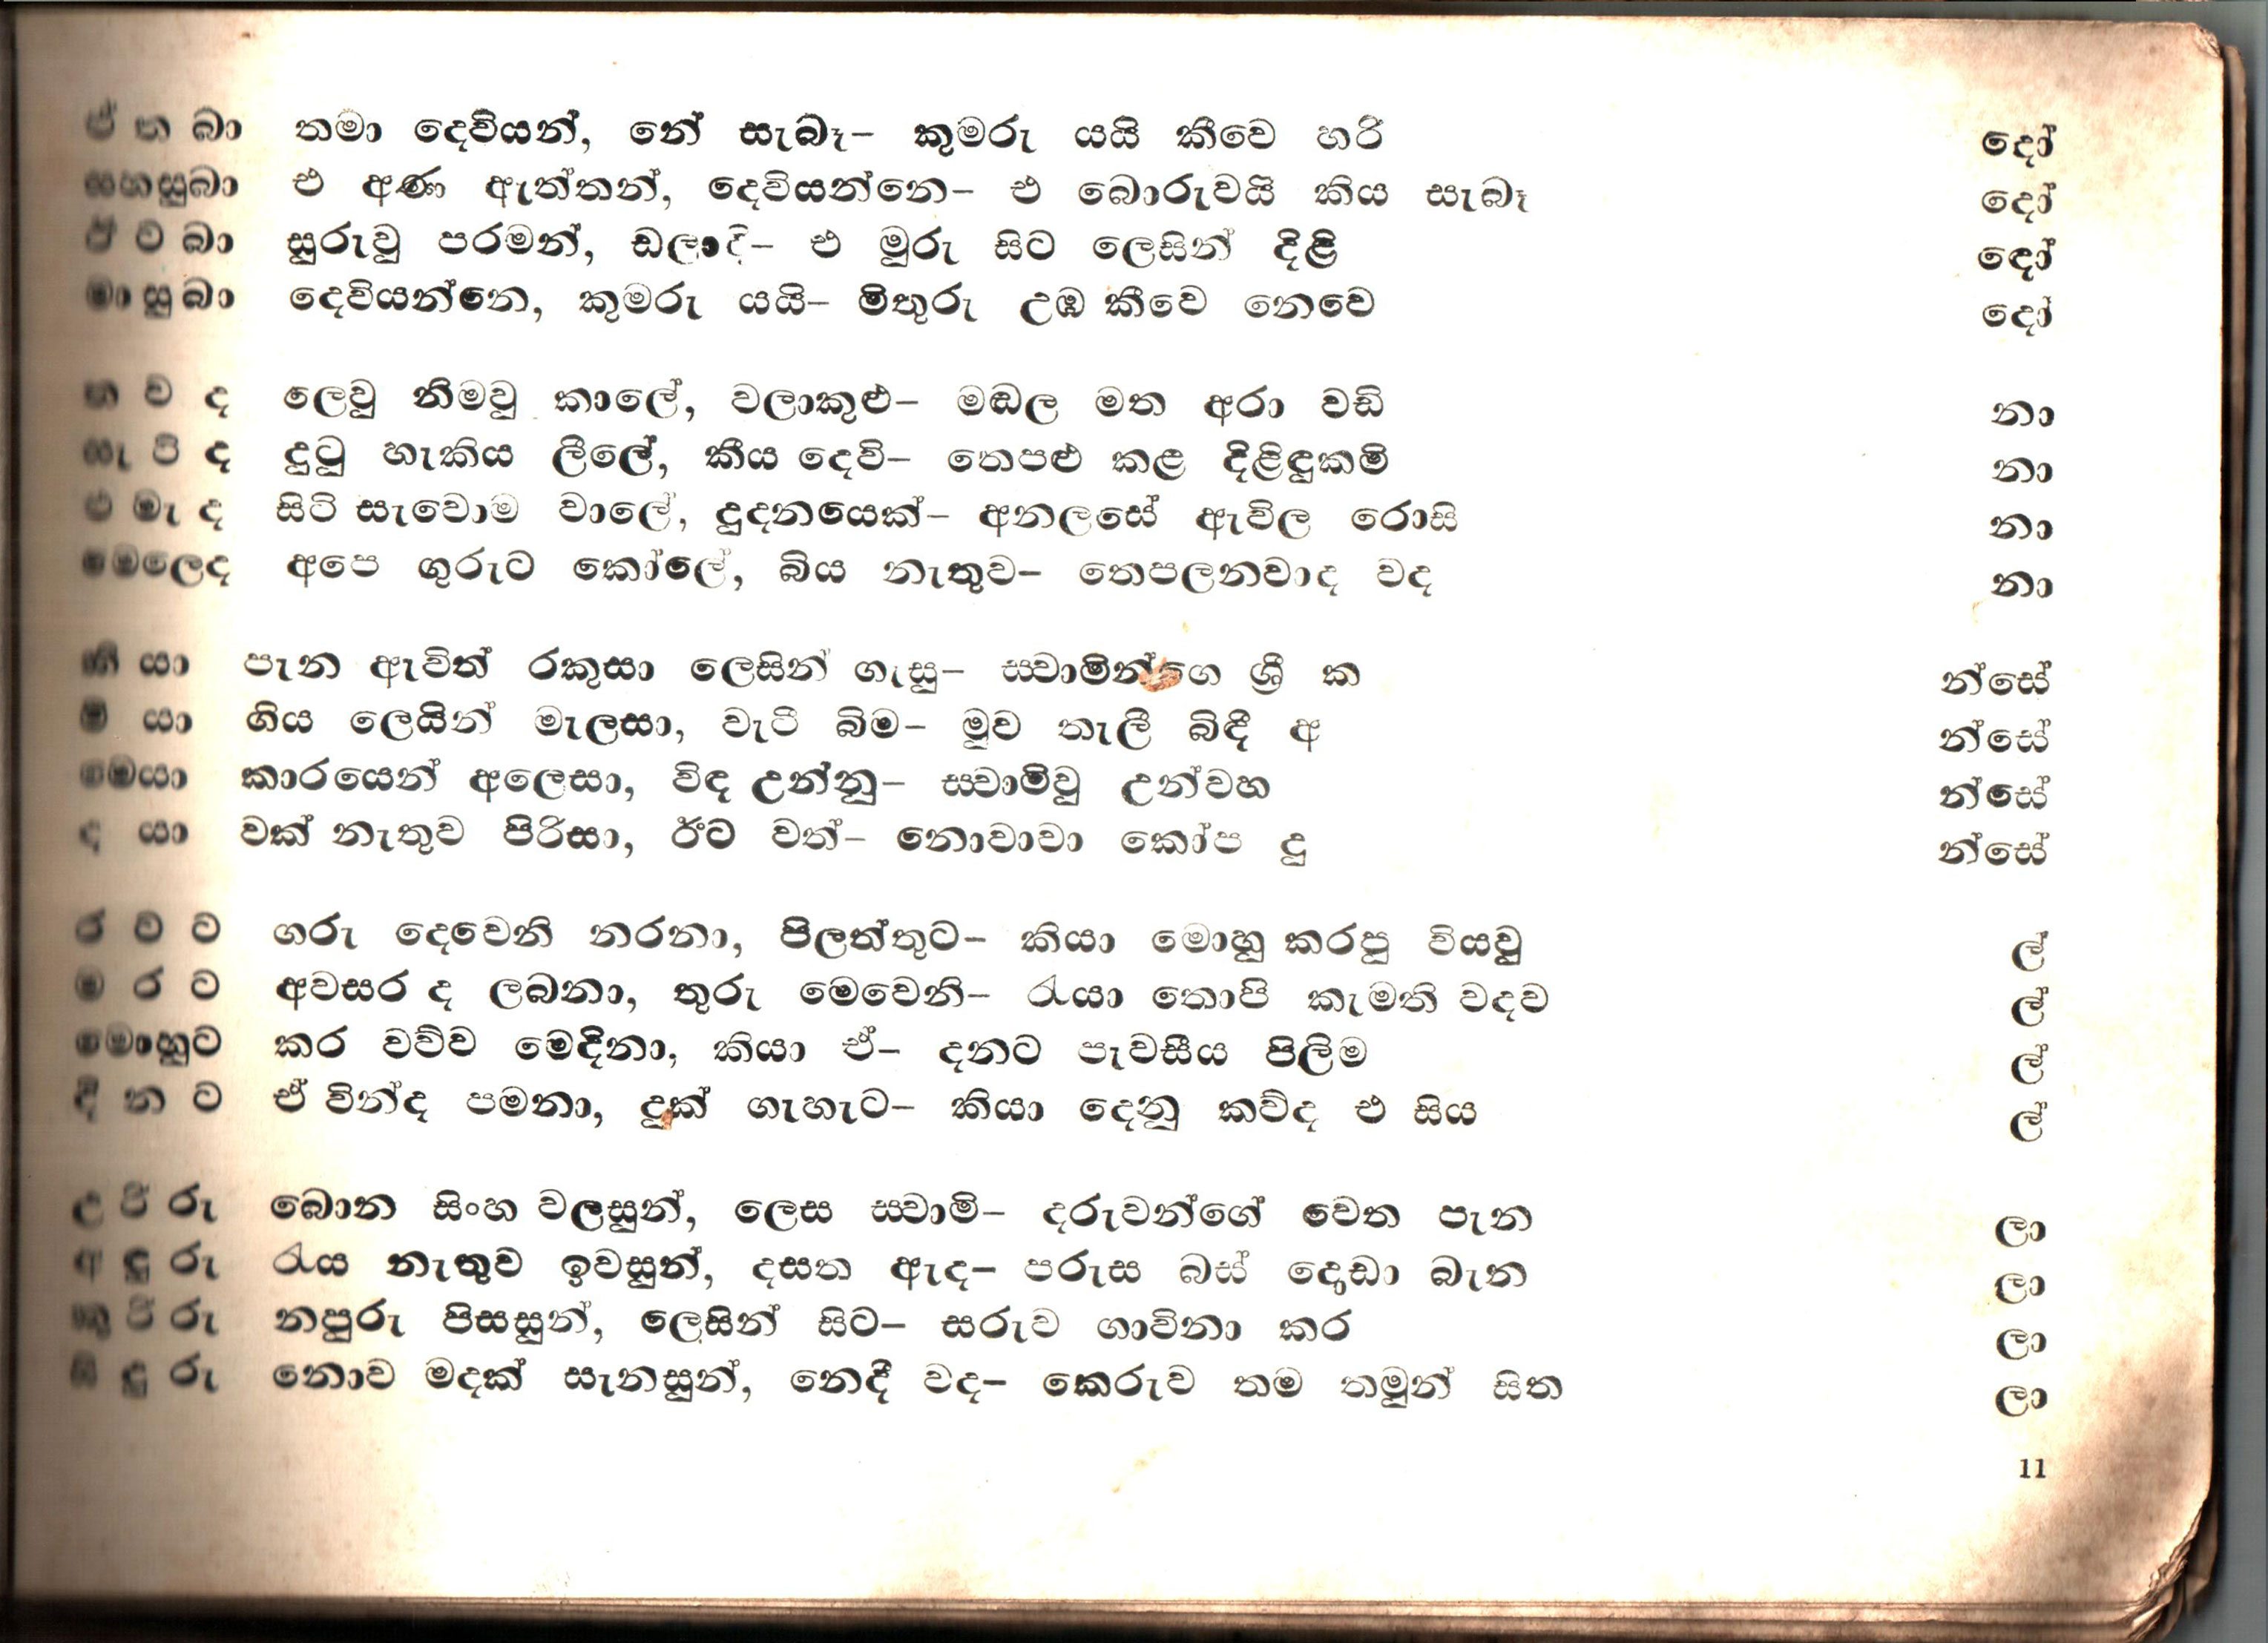 ඒ ත බා තමා දෙවියන්, නේ සැබෑ- කුමරු යයි කීවෙ හරි දෝ
එ අණ ඇත්තන්, දෙවියන්නෙ- එ බොරුවයි කිය සැබෑ දෝ
ඊ ට බා සුරුවු පරමන්, ඩලාදි- එ මුරු සිට ලෙසින් දිළි ඳෝ
මා සු බා දෙවියන්නෙ, කුමරු යයි- මිතුරු උඹ කීවෙ නෙවෙ දෝ
ලෙවු නිමවු කාලේ, වලාකුළු- මඬල මත අරා වඩි නා
දුටු හැකිය ලීලේ, කීය දෙවි- තෙපළු කළ දිළිඳුකමි නා
එ මැ ද සිටි සැවොම වාලේ, දුදනයෙක්- අනලසේ ඇවිල රොසි නා
මෙලෙද අපෙ ගුරුට කෝලේ, බිය නැතුව- තෙපලනවාද වද නා
පැන ඇවිත් රකුසා ලෙසින් ගැසු- ස්වාමින්ගෙ ශ්‍රී ක න්සේ
ගිය ලෙයින් මැලසා, වැටී බිම- මුව තැලී බිඳී අ න්සේ
කාරයෙන් අලෙසා, විඳ උන්නු- ස්වාමිවු උන්වහ න්සේ
ද යා වක් නැතුව පිරිසා, ඊට වත්- නොවාවා කෝප දු න්සේ
ර ව ට ගරු දෙවෙනි නරනා, පිලත්තුට- කියා මොහු කරපු වියවු ල්
ම ර ට අවසර ද ලබනා, තුරු මෙවෙනි- රැයා තොපි කැමති වදව ල්
මොහුට කර වච්ච මෙදිනා, කියා ඒ- දනට පැවසීය පිලිම ල්
දී න ට ඒ වින්ද පමනා, දුක් ගැහැට- කියා දෙනු කව්ද එ සිය ල්
උ රි රු බොන සිංහ වලසුන්, ලෙස ස්වාමි- දරුවන්ගේ වෙත පැන ලා
අ ඳු රු රැය නැතුව ඉවසුන්, දසත ඇද- පරුස බස් දෙඩා බැන ලා
කු රි රු නපුරු පිසසුන්, ලෙසින් සිට- සරුව ගාවිනා කර ලා
නොව මදක් සැනසුන්, නෙදී වද- කෙරුව තම තමුන් සිත ලා
11